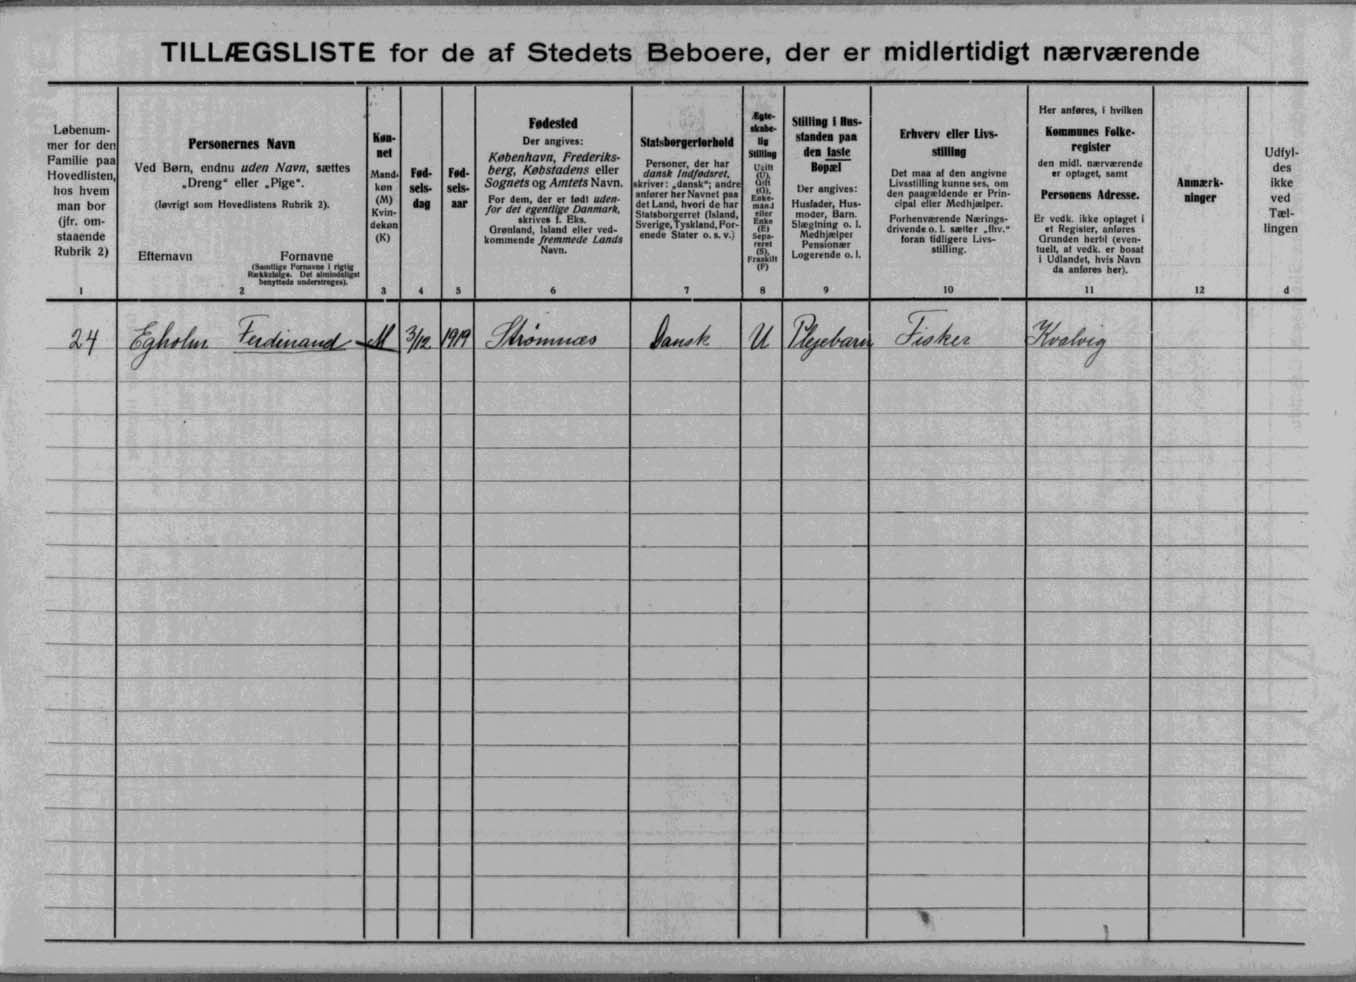 TILLÆGSLISTE for de af Stedets Beboere, der er midlertidigt nærværende
Løbenum-
mer for den
Familie paa
Hovedlisten,
hos hvem
man bor
(jfr. om-
staaende
Rubrik 2)
1
Personernes Navn
Ved Børn, endnu uden Navn, sættes
„Dreng“ eller „Pige“.
(Iøvrigt som Hovedlistens Rubrik 2).
Efternavn Fornavne
(Samtlige Fornavne i rigtig
Rækkefølge. Det almindeligst
benyttede understreges).
2
Køn-
net
Mand-
køn
(M)
Kvin-
dekøn
(K)
3
Fød-
sels-
dag
4
Fød-
sels-
aar
5
Fødested
Der angives:
København, Frederiks-
berg, Købstadens eller
Sognets og Amtets Navn.
For dem, der er født uden-
for det egentlige Danmark,
skrives f. Eks.
Grønland, Island eller ved-
kommende fremmede Lands
Navn.
6
Statsborgerforhold
Personer, der har
dansk Indfødsret,
skriver: „dansk“; andre
anfører her Navnet paa
det Land, hvori de har
Statsborgerret (Island,
Sverige, Tyskland, For-
enede Stater o. s. v.)
7
Ægte-
skabe-
lig
Stilling
Ugift
(U),
Gift
(G),
Enke-
mand
eller
Enke
(E)
Sepa-
reret
(S),
Fraskilt
(F)
8
Stilling i Hus-
standen paa
den faste
Bopæl
Der angives:
Husfader, Hus-
moder, Barn.
Slægtning o. l.
Medhjælper
Pensionær
Logerende o. l.
9
Erhverv eller Livs-
stilling
Det maa af den angivne
Livsstilling kunne ses, om
den paagældende er Prin-
cipal eller Medhjælper.
Forhenværende Nærings-
drivende o. l. sætter „fhv.“
foran tidligere Livs-
stilling.
10
Her anføres, i hvilken
Kommunes Folke-
register
den midl. nærværende
er optaget, samt
Personens Adresse.
Er vedk. ikke optaget i
et Register, anføres
Grunden hertil (even-
tuelt, at vedk. er bosat
i Udlandet, hvis Navn
da anføres her).
11
Anmærk-
ninger
12
Udfyl-
des
ikke
ved
Tæl-
lingen
d
24 Egholm Ferdinand M 3/12 1919 Strømnæs Dansk U Plejebarn Fisker Kvalvig